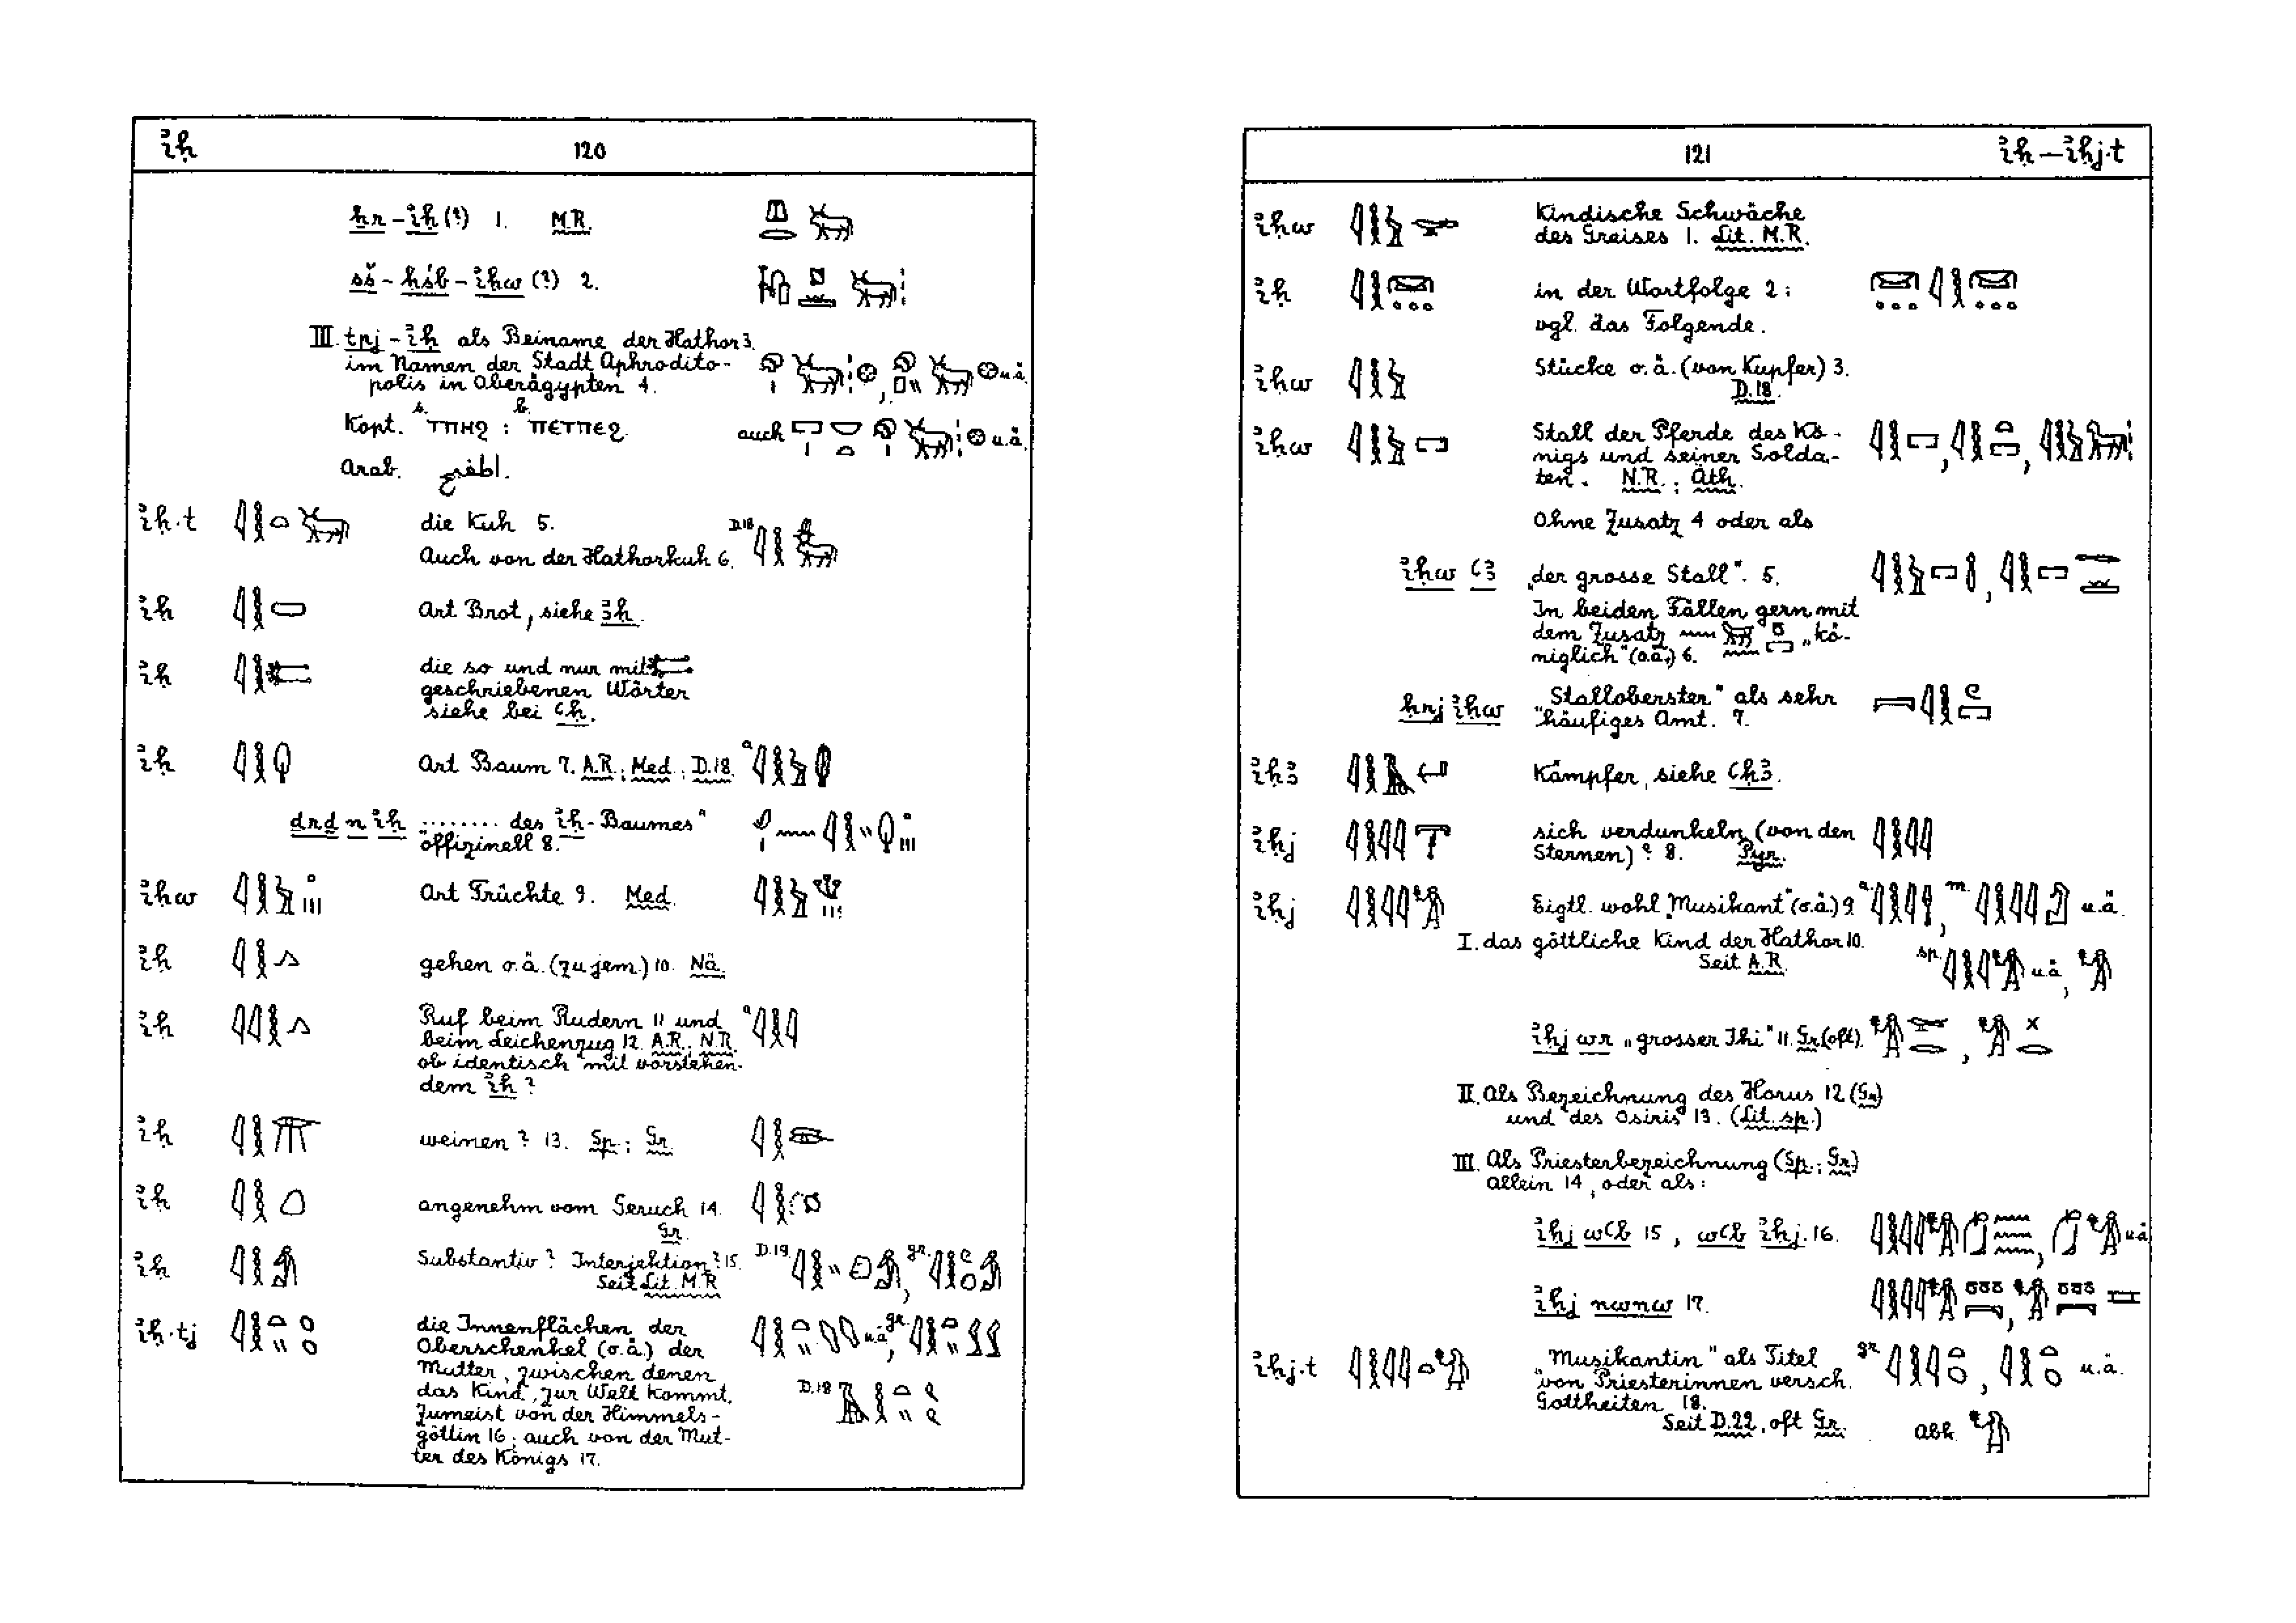 ỉḥ
120
ḥr-ỉḥ (?) 1. M.R.
sš-ḥśb-ỉḥw (?) 2.
III. tpj-ỉḥ als Beiname der Hathor 3.
im Namen der Stadt Aphrodito-
polis in Oberägypten 4.
Kopt. s. ⲧⲡⲏϩ : b. ⲡⲉⲧⲡⲉϩ.
auch u.ä.
Arab. اطفيح.
ỉḥ.t die Kuh 5. D.18
Auch von der Hathorkuh 6.
ỉḥ Art Brot, siehe ꜣḥ.
ỉḥ die so und nur mit
geschriebenen Wörter
siehe bei ꜥḥ.
ỉḥ Art Baum 7. A.R.; Med.; D.18. a
drd n ỉḥ „........ des ỉḥ-Baumes"
offizinell 8.
ỉḥw Art Früchte 9. Med.
ỉḥ gehen o.ä. (zu jem.) 10. Nä.
ỉḥ Ruf beim Rudern 11 und a
beim Leichenzug 12. A.R.; N.R.
ob identisch mit vorstehen-
dem ỉḥ?
ỉḥ weinen? 13. Sp.; Gr.
ỉḥ angenehm vom Geruch 14.
Gr.
ỉḥ Substantiv? Interjektion? 15. D.19. , gr.
Seit Lit. M.R.
ỉḥ.tj die Innenflächen der u.ä., gr.
Oberschenkel (o.ä.) der
Mutter, zwischen denen
das Kind zur Welt kommt. D.18
Zumeist von der Himmels-
göttin 16; auch von der Mut-
ter des Königs 17.
121
ỉḥ – ỉḥj.t
ỉḥw Kindische Schwäche
des Greises 1. Lit. M.R.
ỉḥ in der Wortfolge 2:
vgl. das Folgende.
ỉḥw Stücke o.ä. (von Kupfer) 3.
D.18.
ỉḥw Stall der Pferde des Kö-
nigs und seiner Solda-
ten. N.R.; Äth.
Ohne Zusatz 4 oder als
ỉḥw ꜥꜣ „der grosse Stall". 5.
In beiden Fällen gern mit
dem Zusatz „kö-
niglich" (o.ä.) 6.
ḥrj ỉḥw „Stalloberster" als sehr
häufiges Amt. 7.
ỉḥꜣ Kämpfer, siehe ꜥḥꜣ.
ỉḥj sich verdunkeln (von den
Sternen)? 8. Pyr.
ỉḥj Eigtl. wohl „Musikant" (o.ä.) 9. a. , m. u.ä.
I. das göttliche Kind der Hathor 10.
Seit A.R. sp. u.ä.,
ỉḥj wr „grosser Ihi" 11. Gr. (oft).
II. Als Bezeichnung des Horus 12 (Gr.)
und des Osiris 13. (Lit. sp.)
III. Als Priesterbezeichnung (Sp.; Gr.)
allein 14, oder als:
ỉḥj wꜥb 15, wꜥb ỉḥj. 16. u.ä.
ỉḥj nwnw 17.
ỉḥj.t „Musikantin" als Titel gr. , u.ä.
von Priesterinnen versch.
Gottheiten 18.
Seit D.22, oft Gr. Abk.